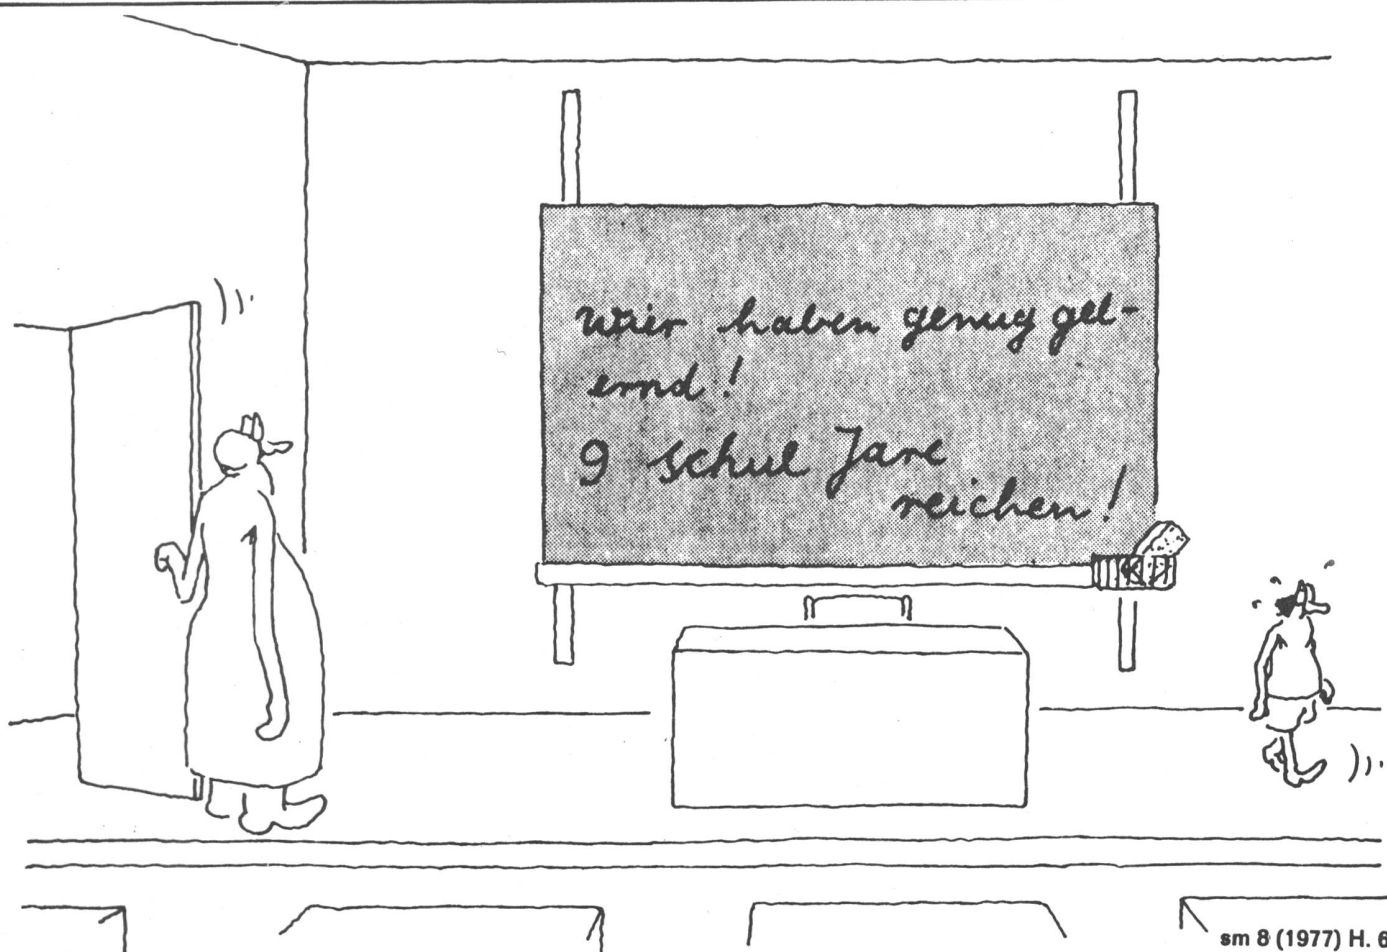 Wier haben genug gel-
ernd!
9 schul Jare
reichen!
sm 8 (1977) H. 6